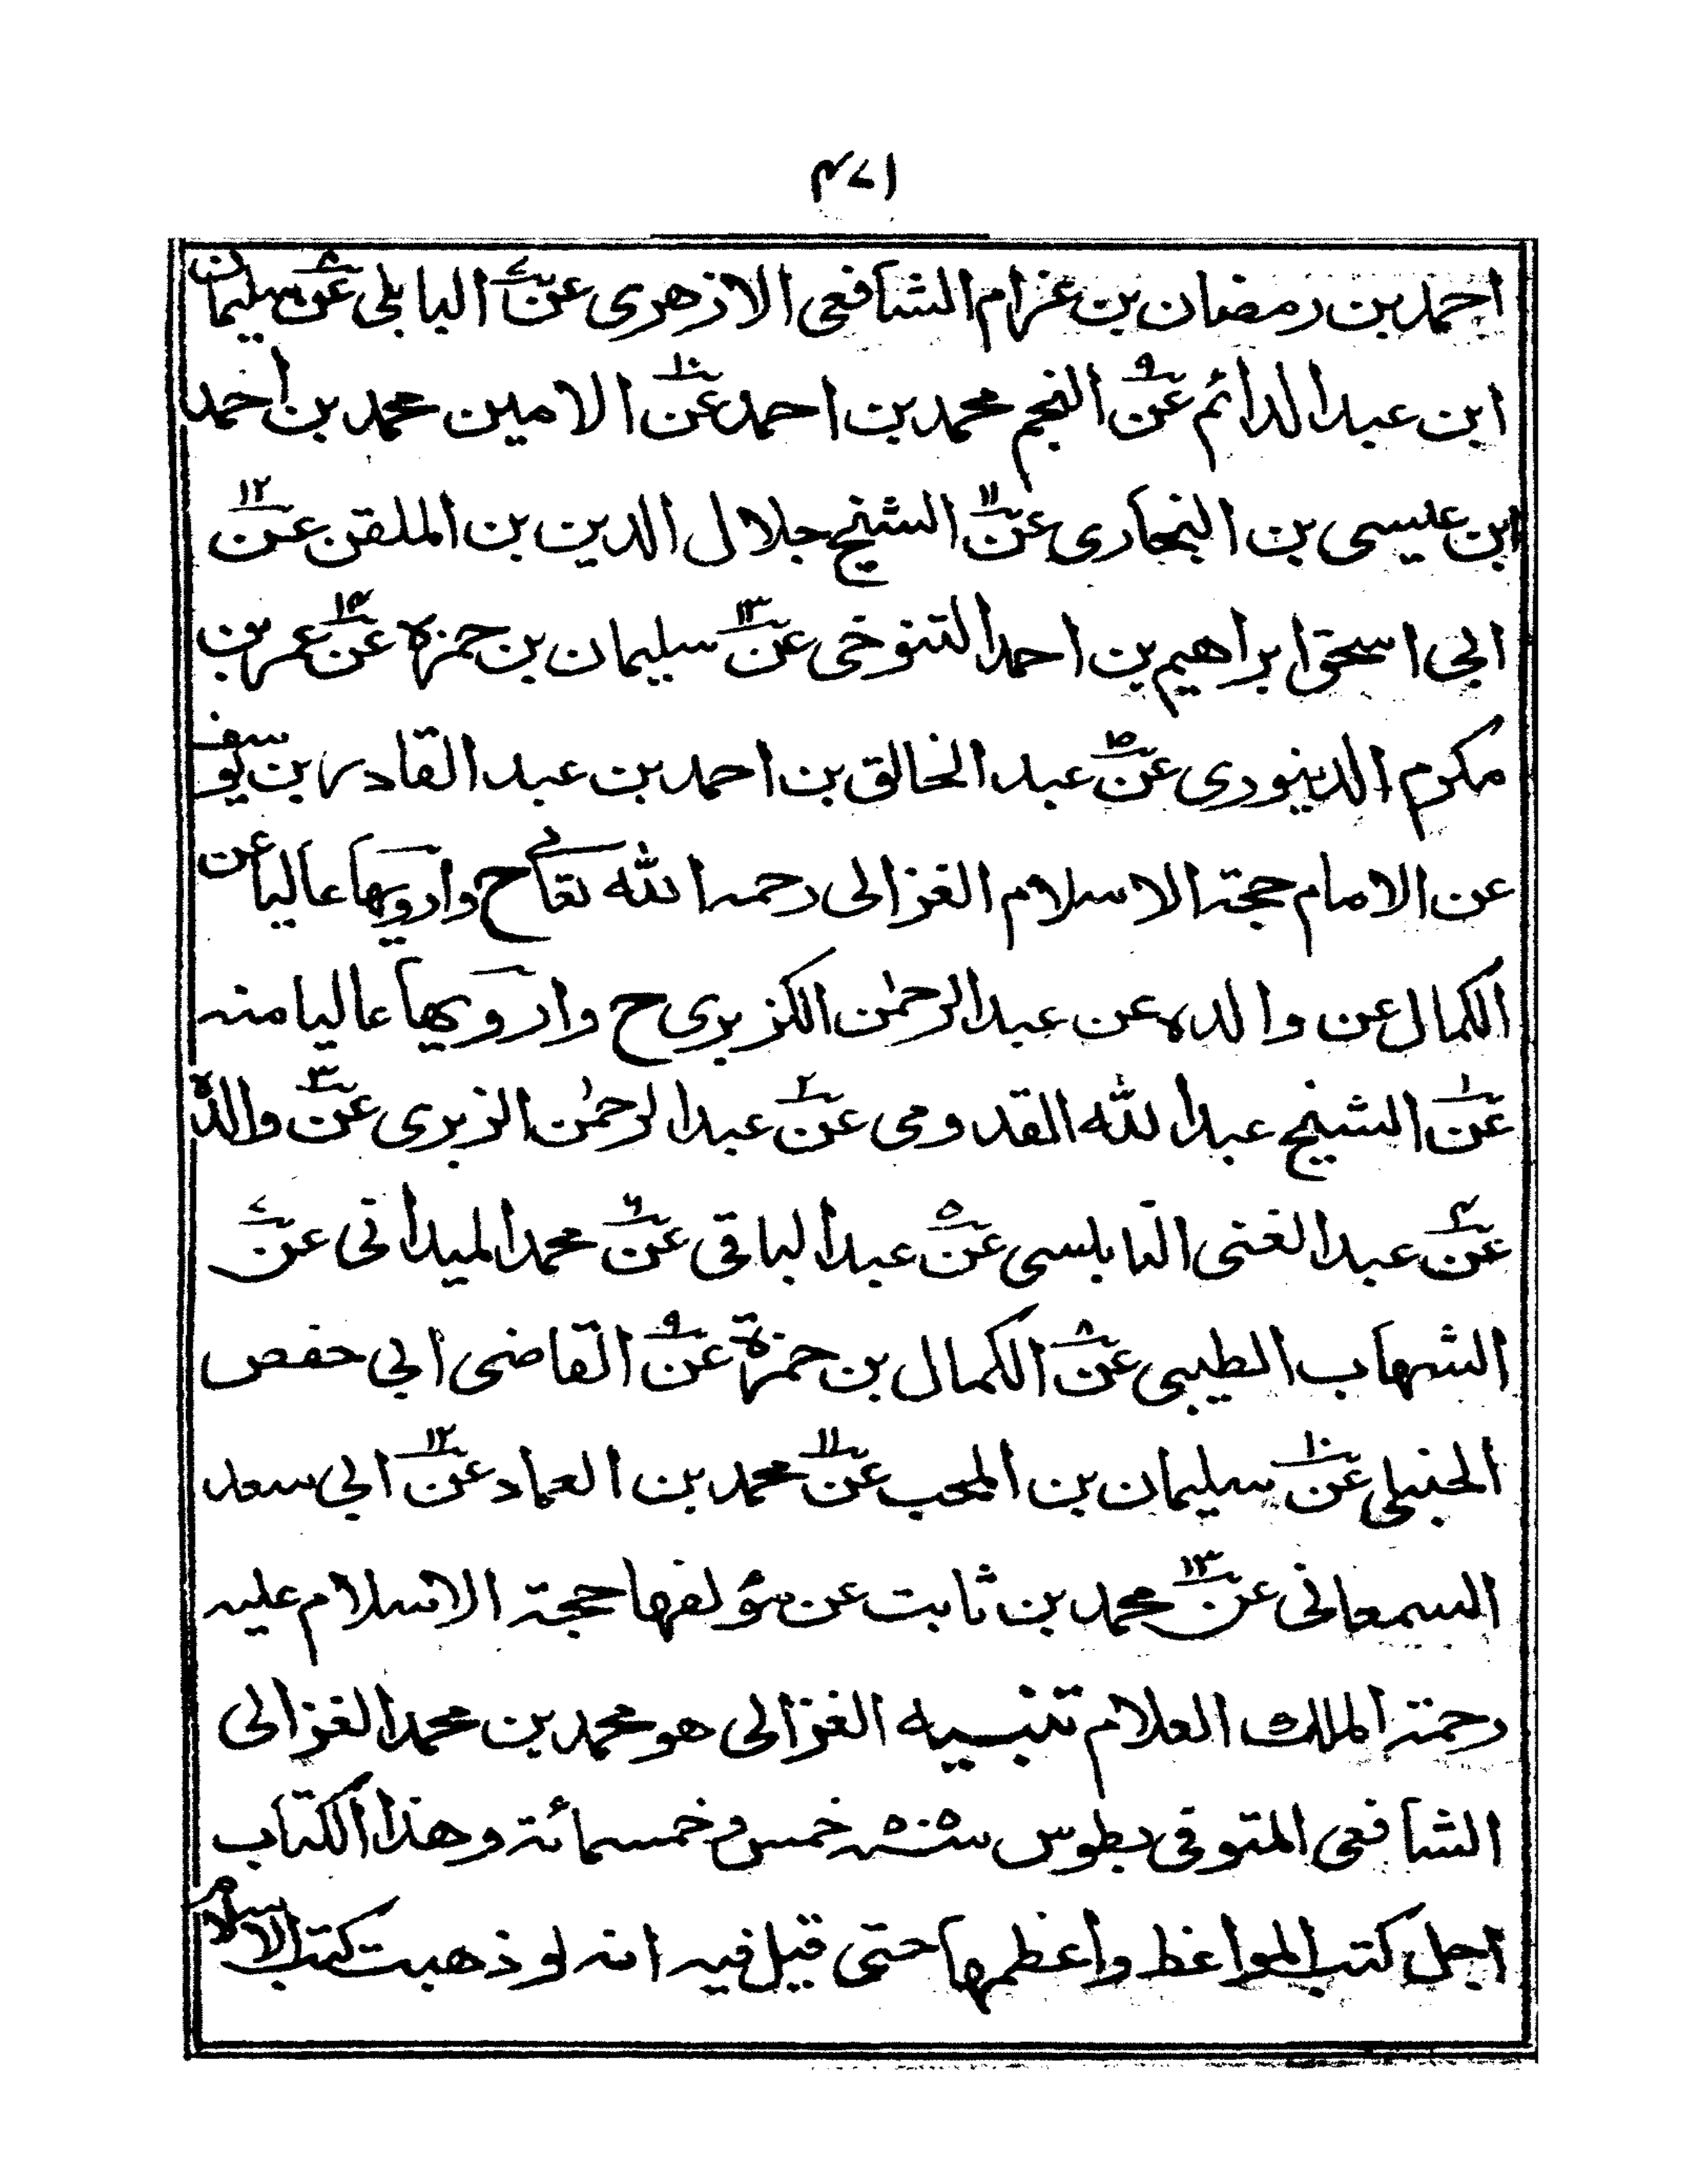 ١٧٤
احمد بن رمضان بن عزام الشافعى الازهرى عن٧ البابلى عن٨ سليمان
ابن عبد الدائم عن٩ النجم محمد بن احمد عن١٠ الامين محمد بن احمد
ابن عيسى بن النجارى عن١١ الشيخ جلال الدين بن الملقن عن١٢
ابى اسحق ابراهيم بن احمد التنوخى عن١٣ سليمان بن حمزه عن١٤ عمر بن
مكرم الدينورى عن١٥ عبد الخالق بن احمد بن عبد القادر بن يوسف
عن الامام حجة الاسلام الغزالى رحمه الله تعالى ح وارويها عاليا عن
الكمال عن والده عن عبد الرحمٰن الكزبرى ح وارويها عاليا منه
عن١ الشيخ عبد الله القدومى عن٢ عبد الرحمٰن الزبرى عن٣ والده
عن٤ عبد الغنى النابلسى عن٥ عبد الباقى عن٦ محمد الميدانى عن٧
الشهاب الطيبى عن٨ الكمال بن حمزة عن٩ القاضى ابى حفص
الحنبلى عن١٠ سليمان بن المحب عن١١ محمد بن العماد عن١٢ ابى سعد
السمعانى عن١٣ محمد بن ثابت عن مؤلفها حجة الاسلام عليه
رحمة الملك العلام تنبيه الغزالى هو محمد بن محمد الغزالى
الشافعى المتوفى بطوس سنة ٥٠٥ خمس وخمسمائة وهذا الكتاب
اجل كتب المواغظ واعظمها حتى قيل فيه انه لو ذهبت كتب الاسلام